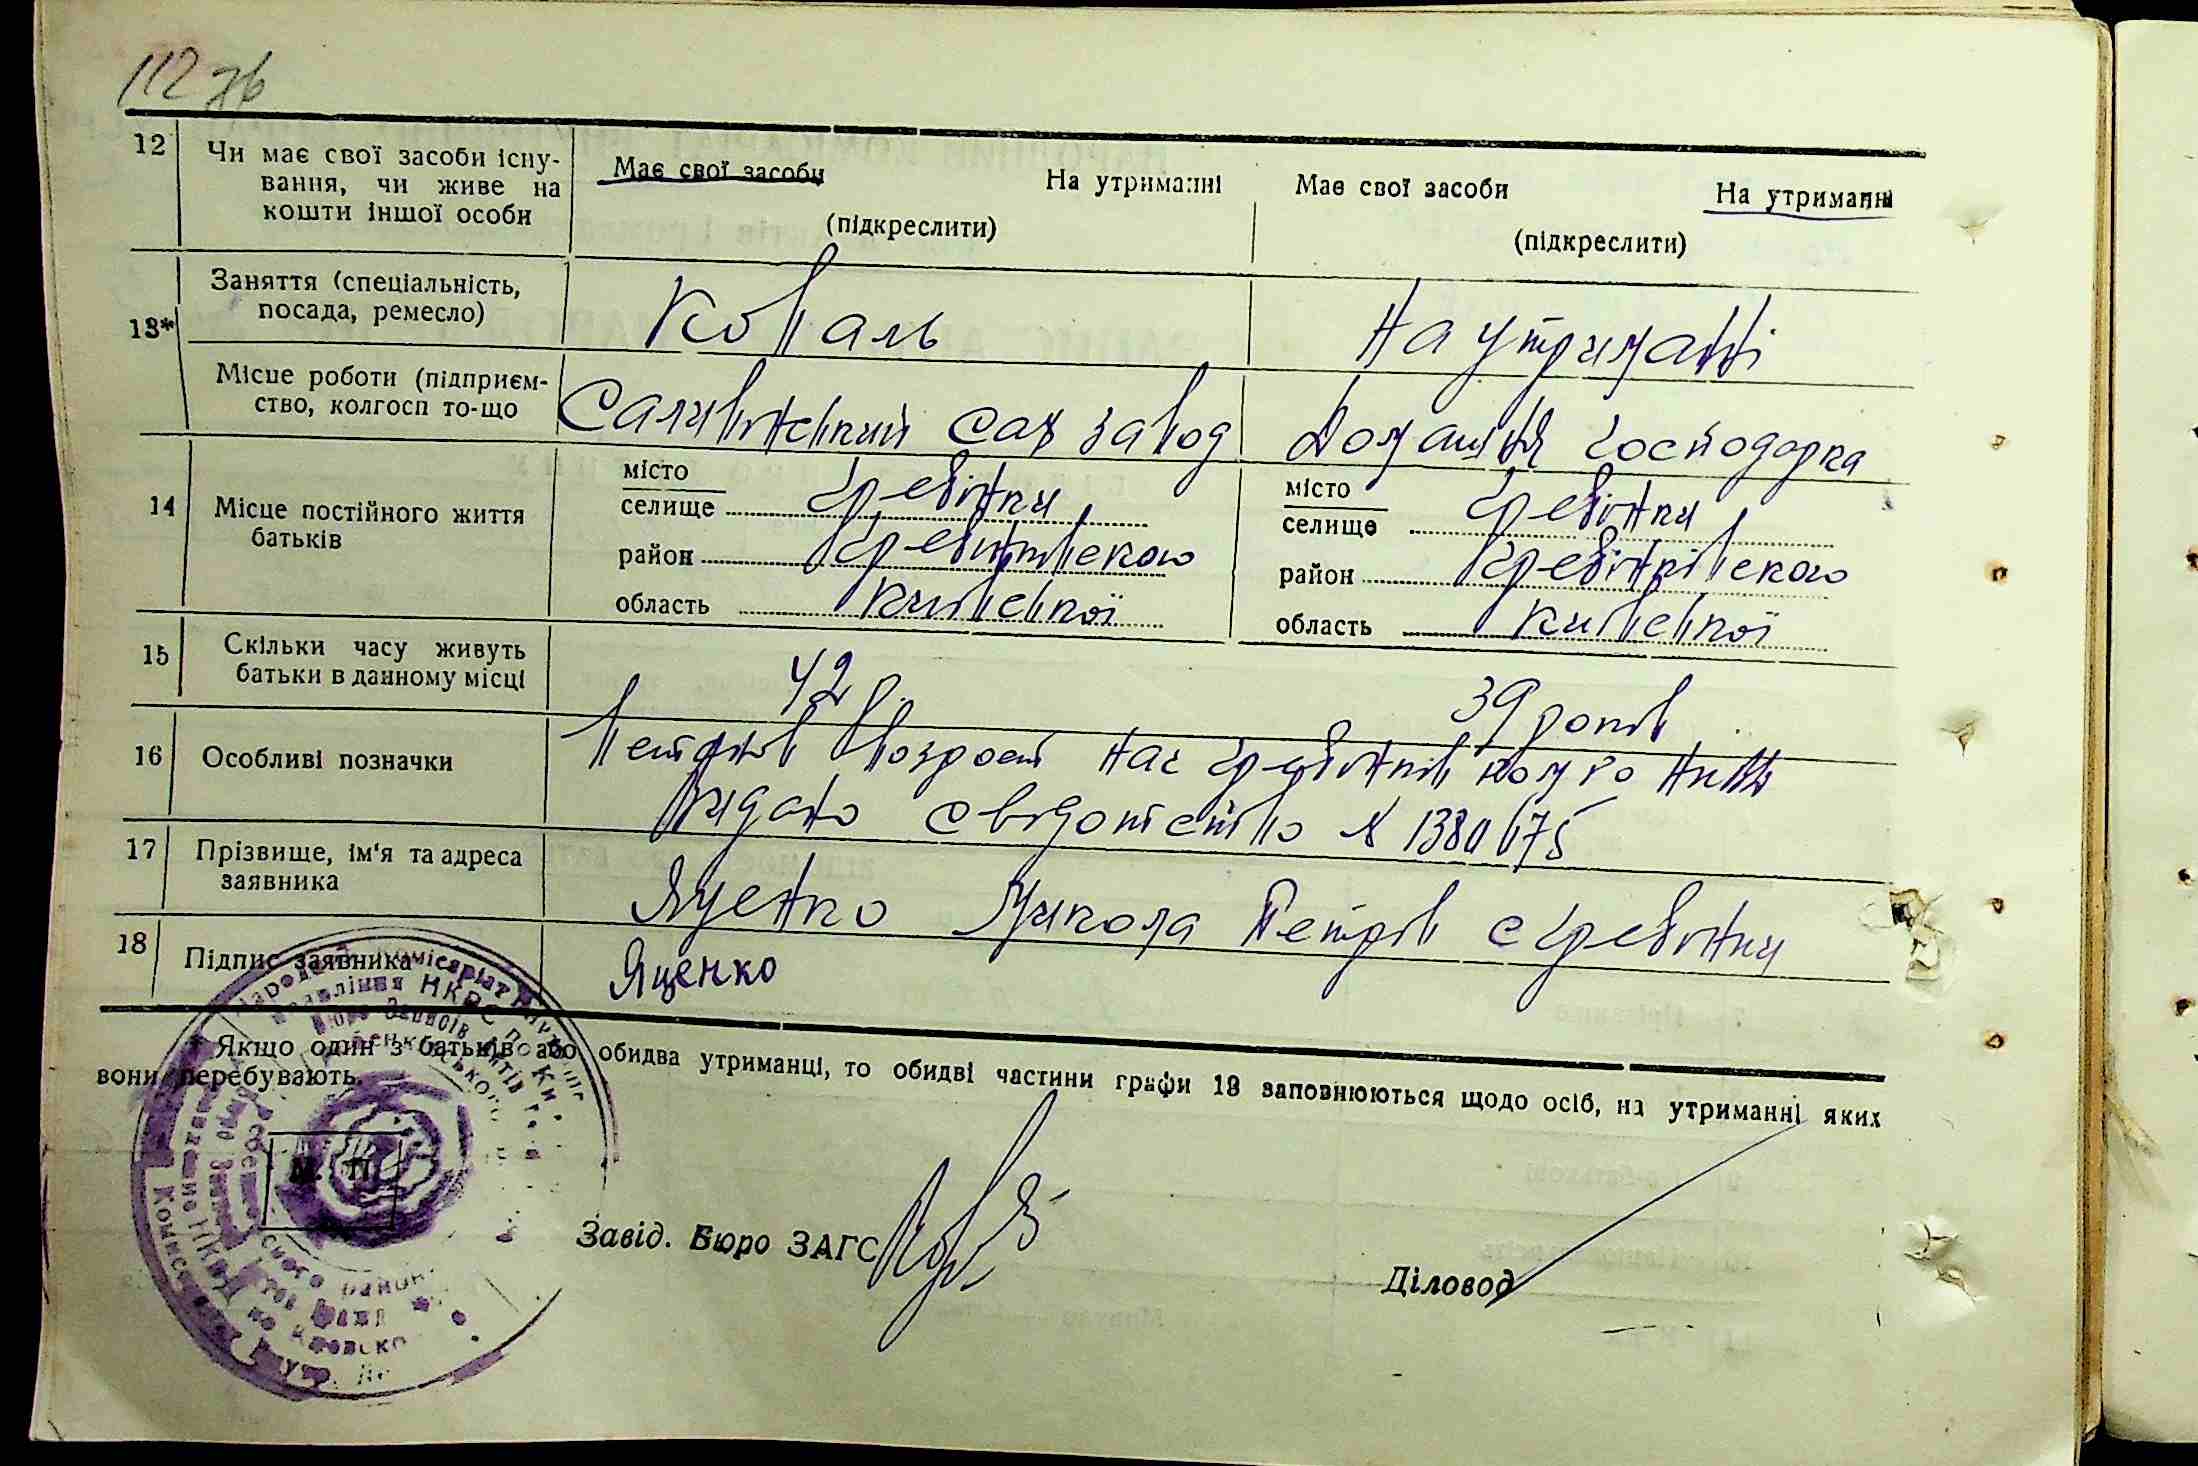 112 зв
12 Чи має свої засоби існу-
вання, чи живе на
кошти іншої особи
Має свої засоби На утриманні
(підкреслити)
Має свої засоби На утриманні
(підкреслити)
13*
Заняття (спеціальність,
посада, ремесло)
Коваль
На утриманні
Місце роботи (підприєм-
ство, колгосп то-що
Саливонський сах завод
Домашня господарка
14 Місце постійного життя
батьків
місто
селище Гребінки
район Гребінківского
область Київської
місто
селище Гребінки
район Гребінківского
область Київської
15 Скільки часу живуть
батьки в данному місці
42 р.
39 років
16 Особливі позначки
возрост
видано свідотство № 1380675
17 Прізвище, ім'я та адреса
заявника
Яценко Микола Петров с Гребінки
18 Підпис заявника
Яценко
* Якщо один з батьків або обидва утриманці, то обидві частини графи 13 заповнюються щодо осіб, на утриманні яких
вони перебувають.
М. П.
Завід. Бюро ЗАГС
Діловод